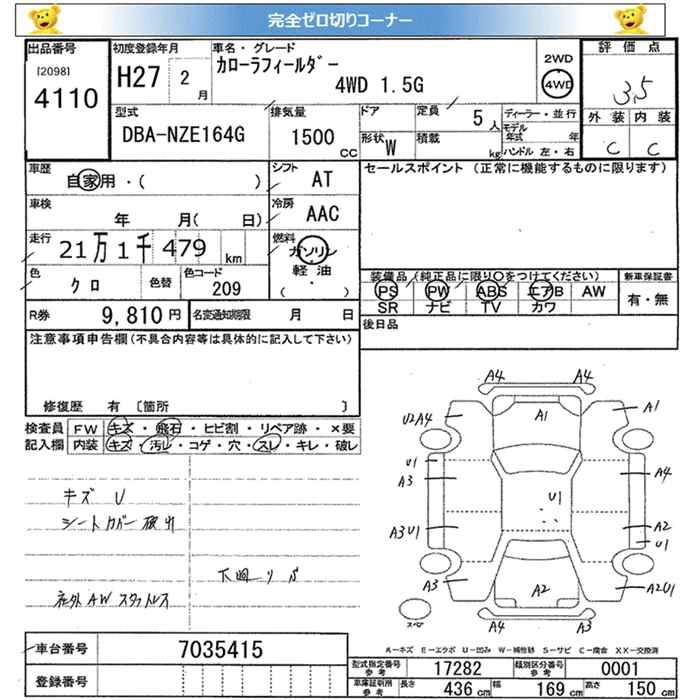 完全ゼロ切りコーナー
出品番号 初度登録年月 車名・グレード 評価点
[2098] 4110
H27 2月
カローラフィールダー
4WD 1.5G
2WD
4WD
3.5
型式 排気量 ドア 定員 5人 ディーラー・並行
外装 内装
DBA-NZE164G 1500cc
形状 W 積載 kg
モデル年式 年
ハンドル 左・右
C C
車歴 自家用・( )
シフト AT
セールスポイント (正常に機能するものに限ります)
車検 年 月( 日)
冷房 AAC
走行 21万1千479km
燃料 ガソリン 軽油 ( )
色 クロ 色替 色コード 209
装備品(純正品に限り○をつけてください) 新車保証書
PS PW ABS エアB AW 有・無
SR ナビ TV カワ
R券 9,810円 名変通知期限 月 日
後日品
注意事項申告欄(不具合内容等は具体的に記入して下さい)
修復歴 有 〔箇所 〕
検査員 FW キズ・飛石・ヒビ割・リペア跡・×要
記入欄 内装 キズ・汚レ・コゲ・穴・スレ・キレ・破レ
キズ U
シートカバー
下回り
社外AW スタットレス
A4
U2A4 A1 A1
U1
A3 U1 A4
A3U1 A2
U1
A3 A2 A2U1
A4 A3
スペア
A-キズ E-エクボ U-凹み W-補修跡 S-サビ C-腐食 XX-交換済
車台番号 7035415
登録番号
型式指定番号 参考 17282 類別区分番号 参考 0001
車庫証明用 参考 長さ 436cm 幅 169cm 高さ 150cm